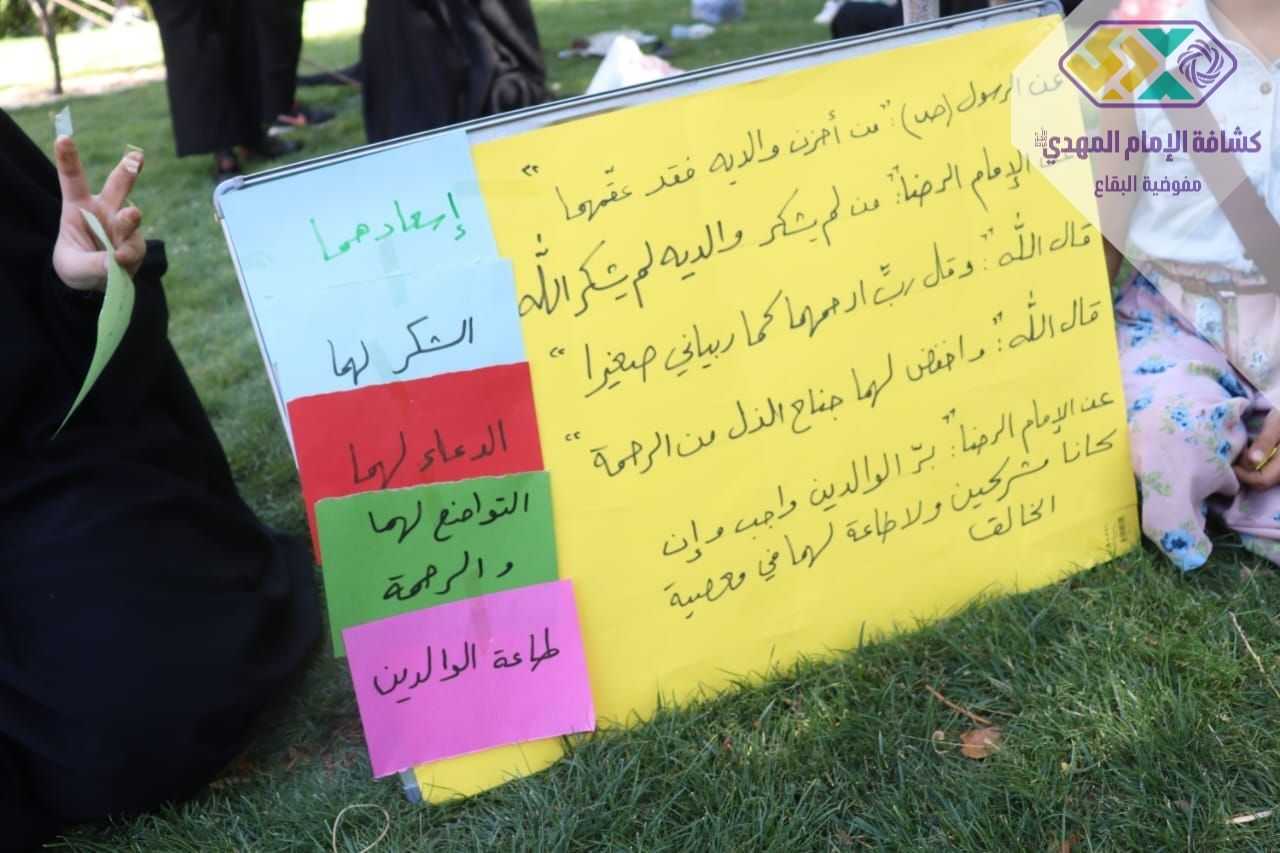 كشافة الإمام المهدي
مفوضية البقاع
عن الرسول (ص): "من أحزن والديه فقد عقّهما"
الإمام الرضا: "من لم يشكر والديه لم يشكر الله
قال الله: "وقل ربّ ارحمهما كما ربياني صغيرا"
قال الله: "واخفض لهما جناح الذل من الرحمة"
عن الإمام الرضا: "برّ الوالدين واجب وإن
كانا مشركين ولا طاعة لهما في معصية
الخالق
إسعادهما
الشكر لهما
الدعاء لهما
التواضع لهما
والرحمة
طاعة الوالدين